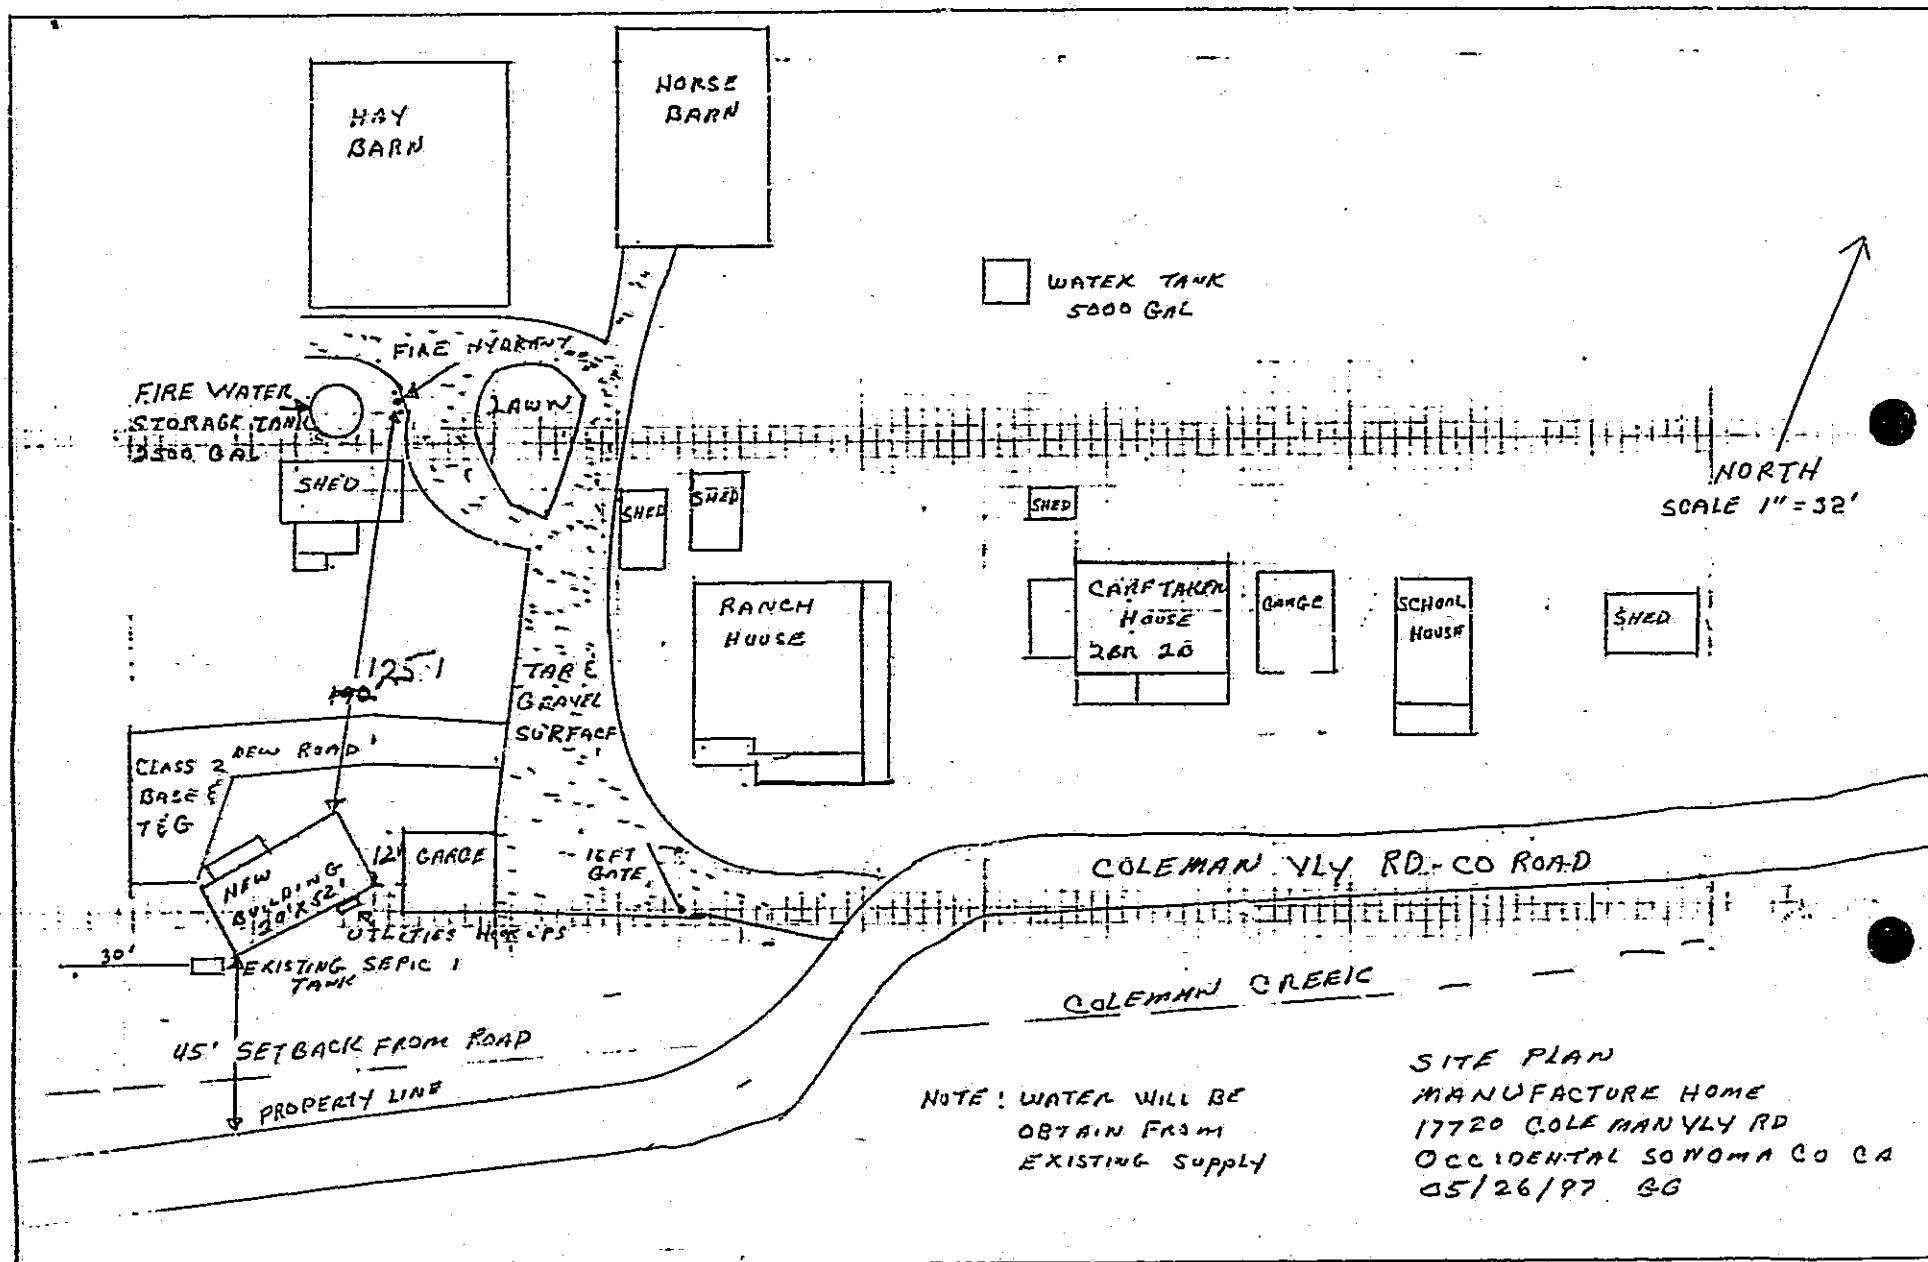 HAY
BARN
HORSE
BARN
WATER TANK
5000 GAL
FIRE HYDRANT
FIRE WATER
STORAGE TANK
GAL
LAWN
SHED
SHED
SHED
SHED
NORTH
SCALE 1" = 32'
RANCH
HOUSE
CARETAKER
HOUSE
2BR 2B
GARGE
SCHOOL
HOUSE
SHED
125'
190
TAR &
GRAVEL
SURFACE
NEW ROAD
CLASS 2
BASE &
T&G
NEW
BUILDING
X 52'
12'
GARGE
GATE
COLEMAN VLY RD-CO ROAD
UTILITIES HOOK-UPS
30'
EXISTING SEPIC
TANK
COLEMAN CREEK
45' SETBACK FROM ROAD
PROPERTY LINE
NOTE: WATER WILL BE
OBTAIN FROM
EXISTING SUPPLY
SITE PLAN
MANUFACTURE HOME
17720 COLEMAN VLY RD
OCCIDENTAL SONOMA CO CA
05/26/97 GG